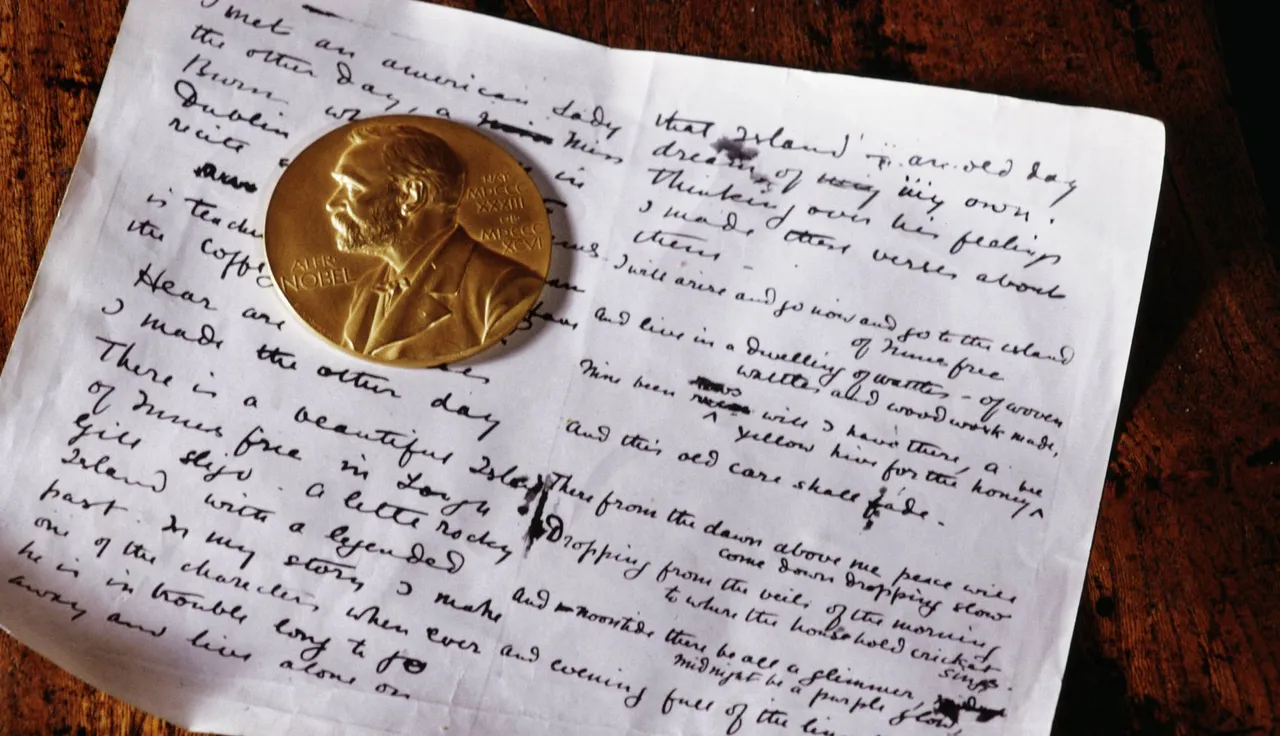 I met an american Lady
the other day, a Miss
Burn
Dublin
recite
is
the
Hear are
I made the other day
There is a beautiful Island
of Innis free in Lough
Gill Sligo. A little rocky
Island with a legended
past. In my story I make
one of the charecters when ever
he is in trouble long to go
away and live alone on
ALFR·
NOBEL
NAT·
MDCCC
XXXIII
OB·
MDCCC
XCVI
that Island - an old day
dream of my own.
Thinking over his feelings
I made these verses about
them -
I will arise and go now and go to the island
of Innis free
And live in a dwelling of wattles - of woven
wattles and wood work made,
Nine bean rows will I have there, a
yellow hive for the honey bee
And this old care shall fade.
There from the dawn above me peace will
come down dropping slow
Dropping from the veils of the morning
to where the household cricket
sings.
And noontide there be all a glimmer,
midnight be a purple glow,
and evening full of the